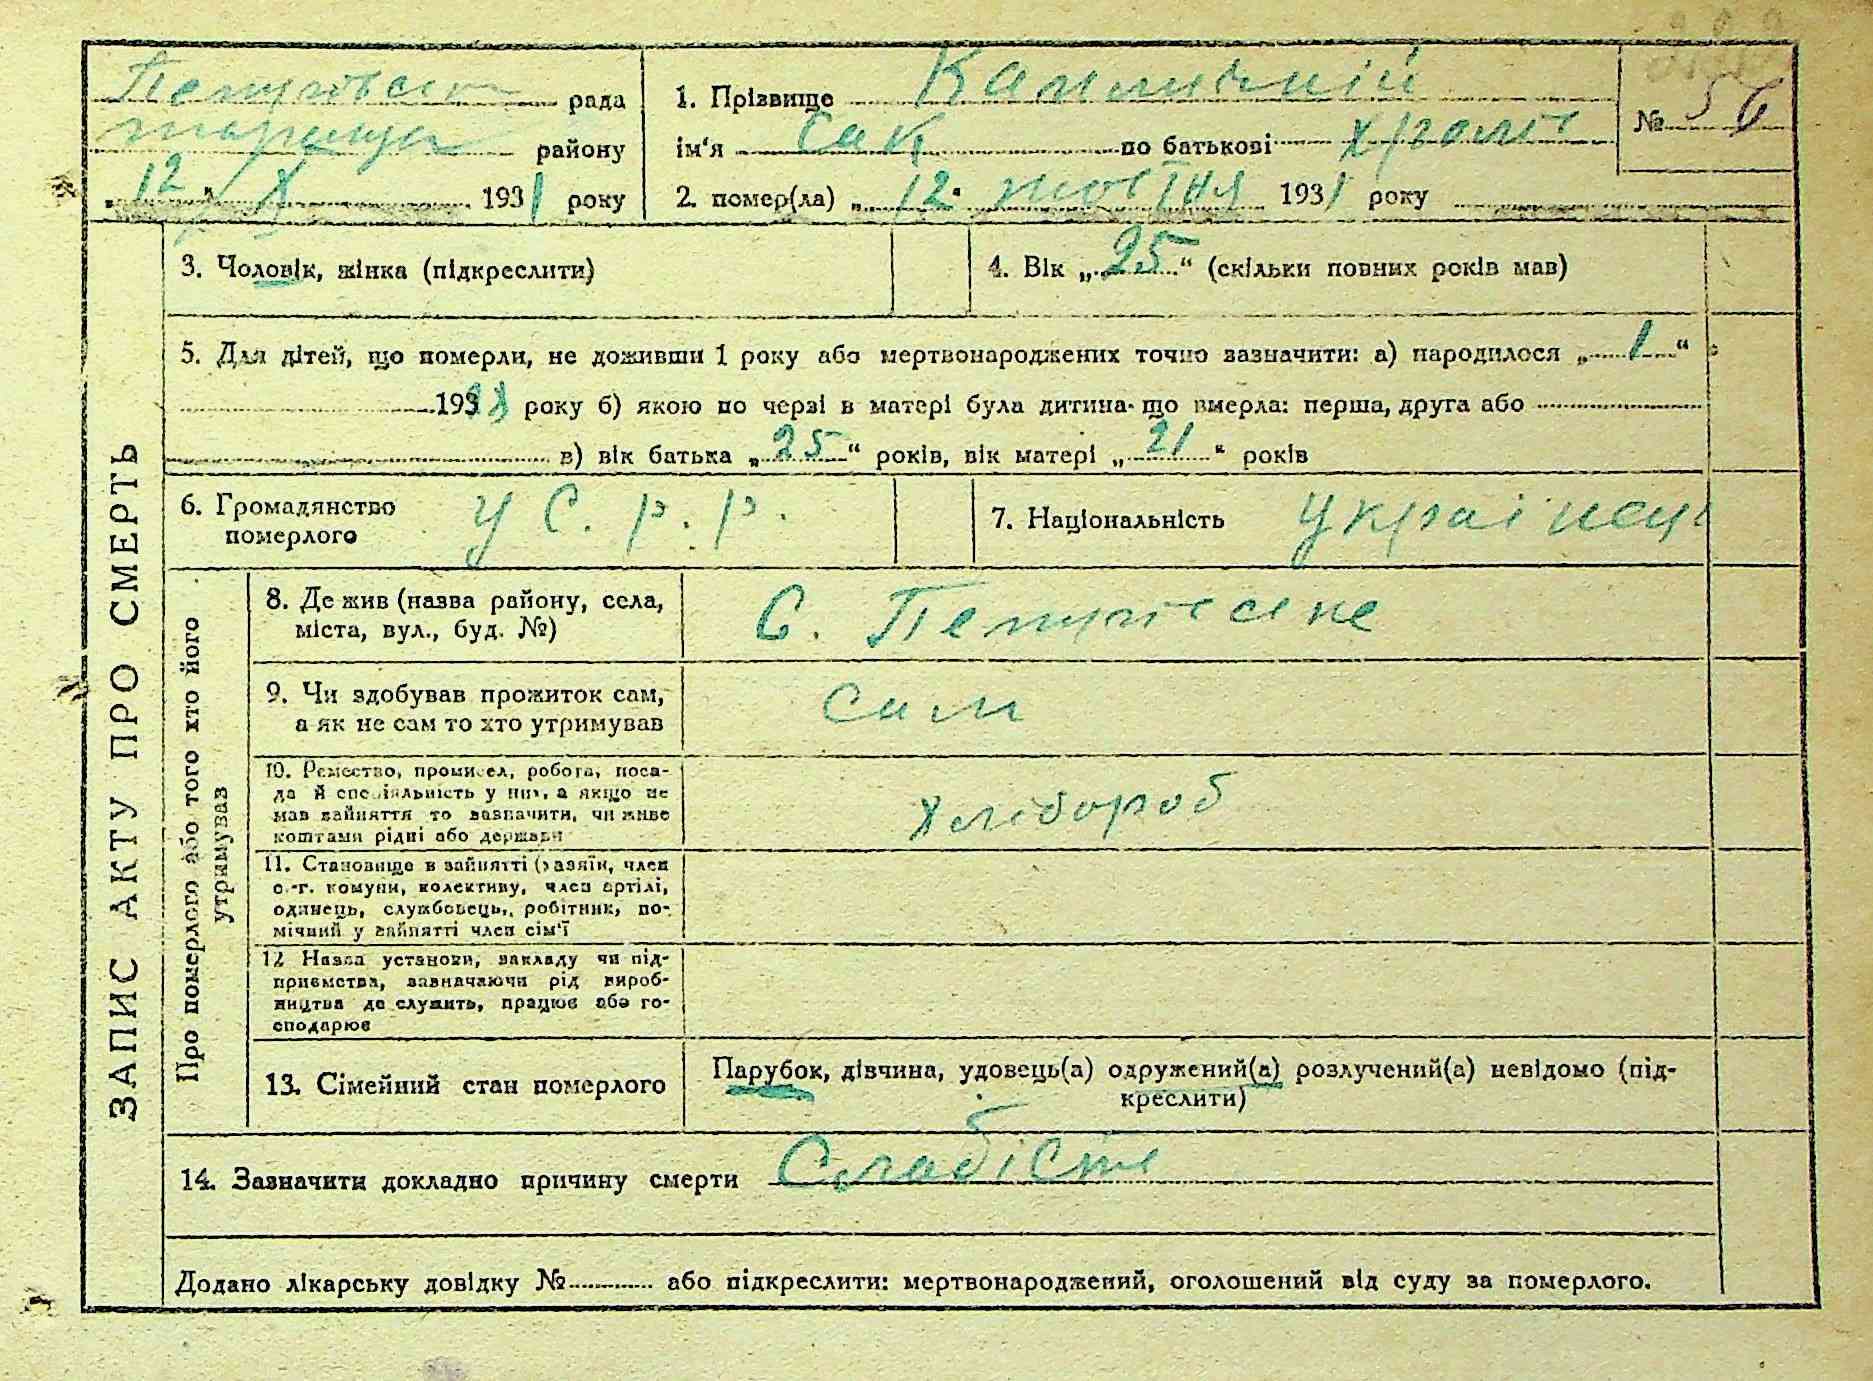 рада
району
"12" X 1931 року
1. Прізвище
№ 56
ім'я Сак по батькові
2. помер(ла) "12" жовтня 1931 року
ЗАПИС АКТУ ПРО СМЕРТЬ
3. Чоловік, жінка (підкреслити)
4. Вік „25“ (скільки повних років мав)
5. Для дітей, що померли, не доживши 1 року або мертвонароджених точно зазначити: а) народилося „1“
193 року б) якою по черзі в матері була дитина що вмерла: перша, друга або
в) вік батька „25“ років, вік матері „21“ років
6. Громадянство
померлого
У С. Р. Р.
7. Національність українець
Про померлого або того хто його
утримував
8. Де жив (назва району, села,
міста, вул., буд. №)
С.
9. Чи здобував прожиток сам,
а як не сам то хто утримував
сам
10. Ремество, промисел, робота, поса-
да й спеціяльність у них, а якщо не
мав зайняття то зазначити, чи живе
коштами рідні або держави
хлібороб
11. Становище в зайнятті (хазяїн, член
с.-г. комуни, колективу, член артілі,
одинець, службовець, робітник, по-
мічний у зайнятті член сім'ї
12 Назва установи, закладу чи під-
приємства, зазначаючи рід вироб-
ництва де служить, працює або го-
сподарює
13. Сімейний стан померлого
Парубок, дівчина, удовець(а) одружений(а) розлучений(а) невідомо (під-
креслити)
14. Зазначити докладно причину смерти Слабість
Додано лікарську довідку № або підкреслити: мертвонароджений, оголошений від суду за померлого.